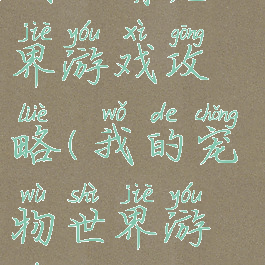 jiè yóu xì gōng
界游戏攻
lüè wǒ de chǒng
略(我的宠
wù shì jiè yóu
物世界游